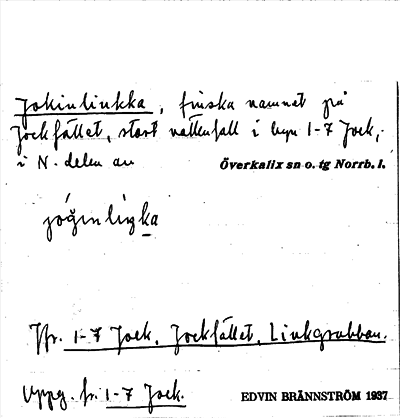 Jokinlinkka, finska namnet på
Jockfället, stort vattenfall i byn 1-7 Jock,
i N. delen av Överkalix sn o. tg Norrb. l.
Jfr. 1-7 Jock, Jockfället, Linkgrubban.
Uppg. fr. 1-7 Jock. EDVIN BRÄNNSTRÖM 1937